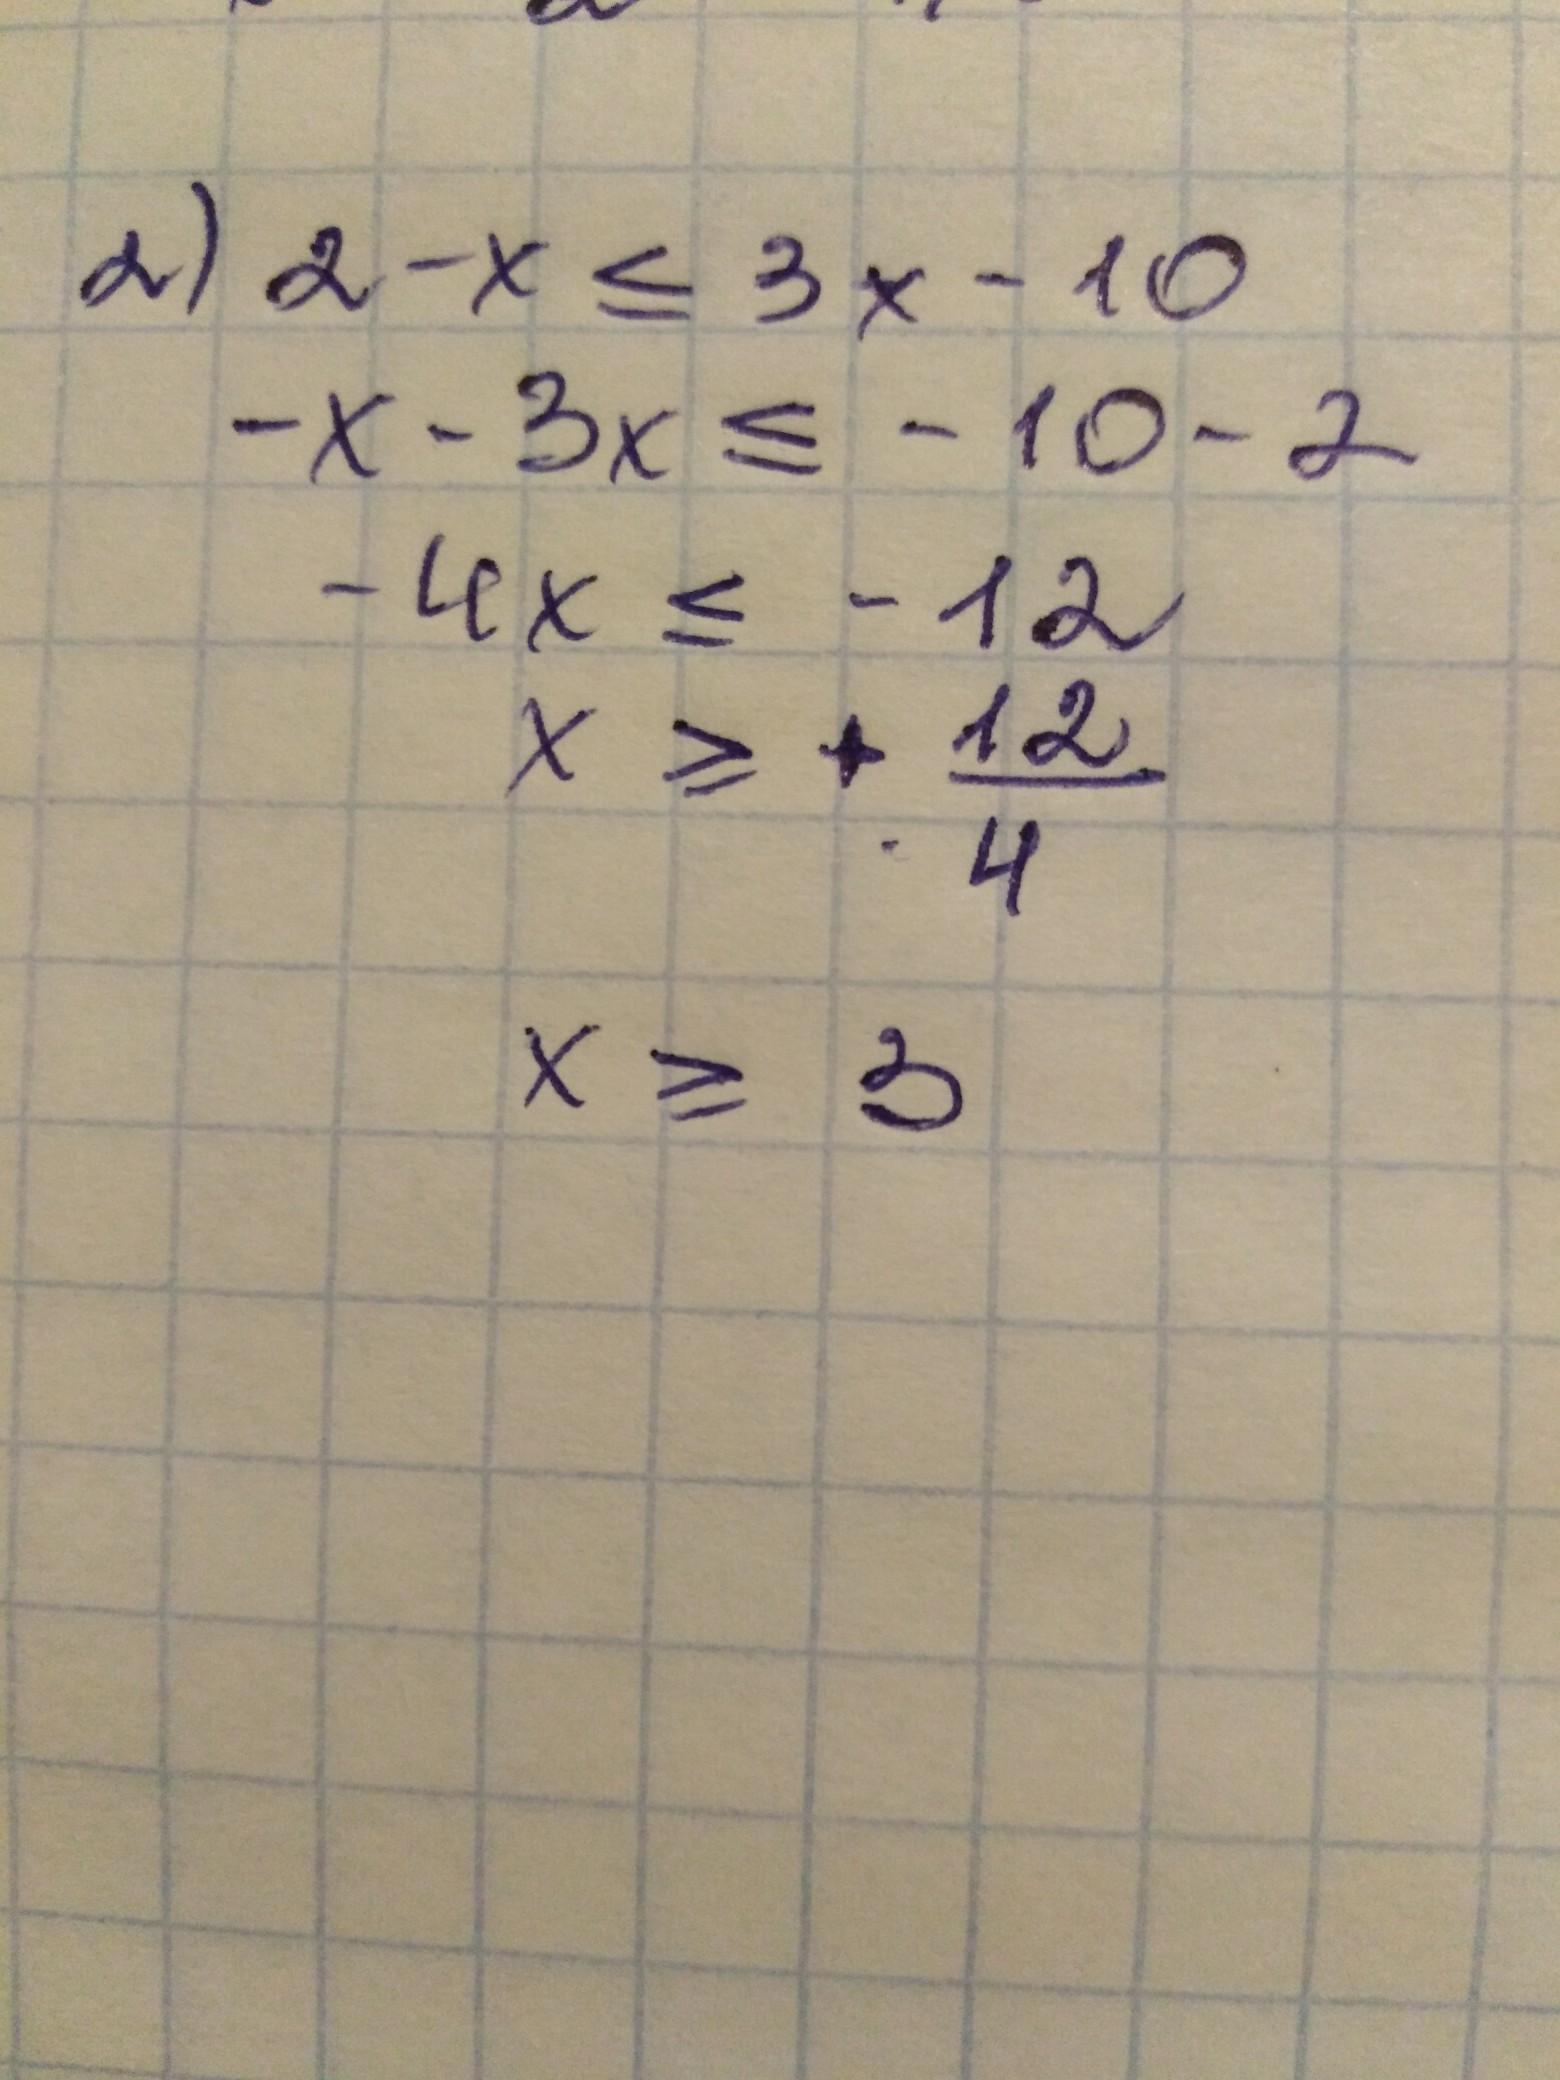 2) 2 - x ≤ 3x - 10
-x - 3x ≤ - 10 - 2
- 4x ≤ - 12
x ≥ + 12/4
x ≥ 3